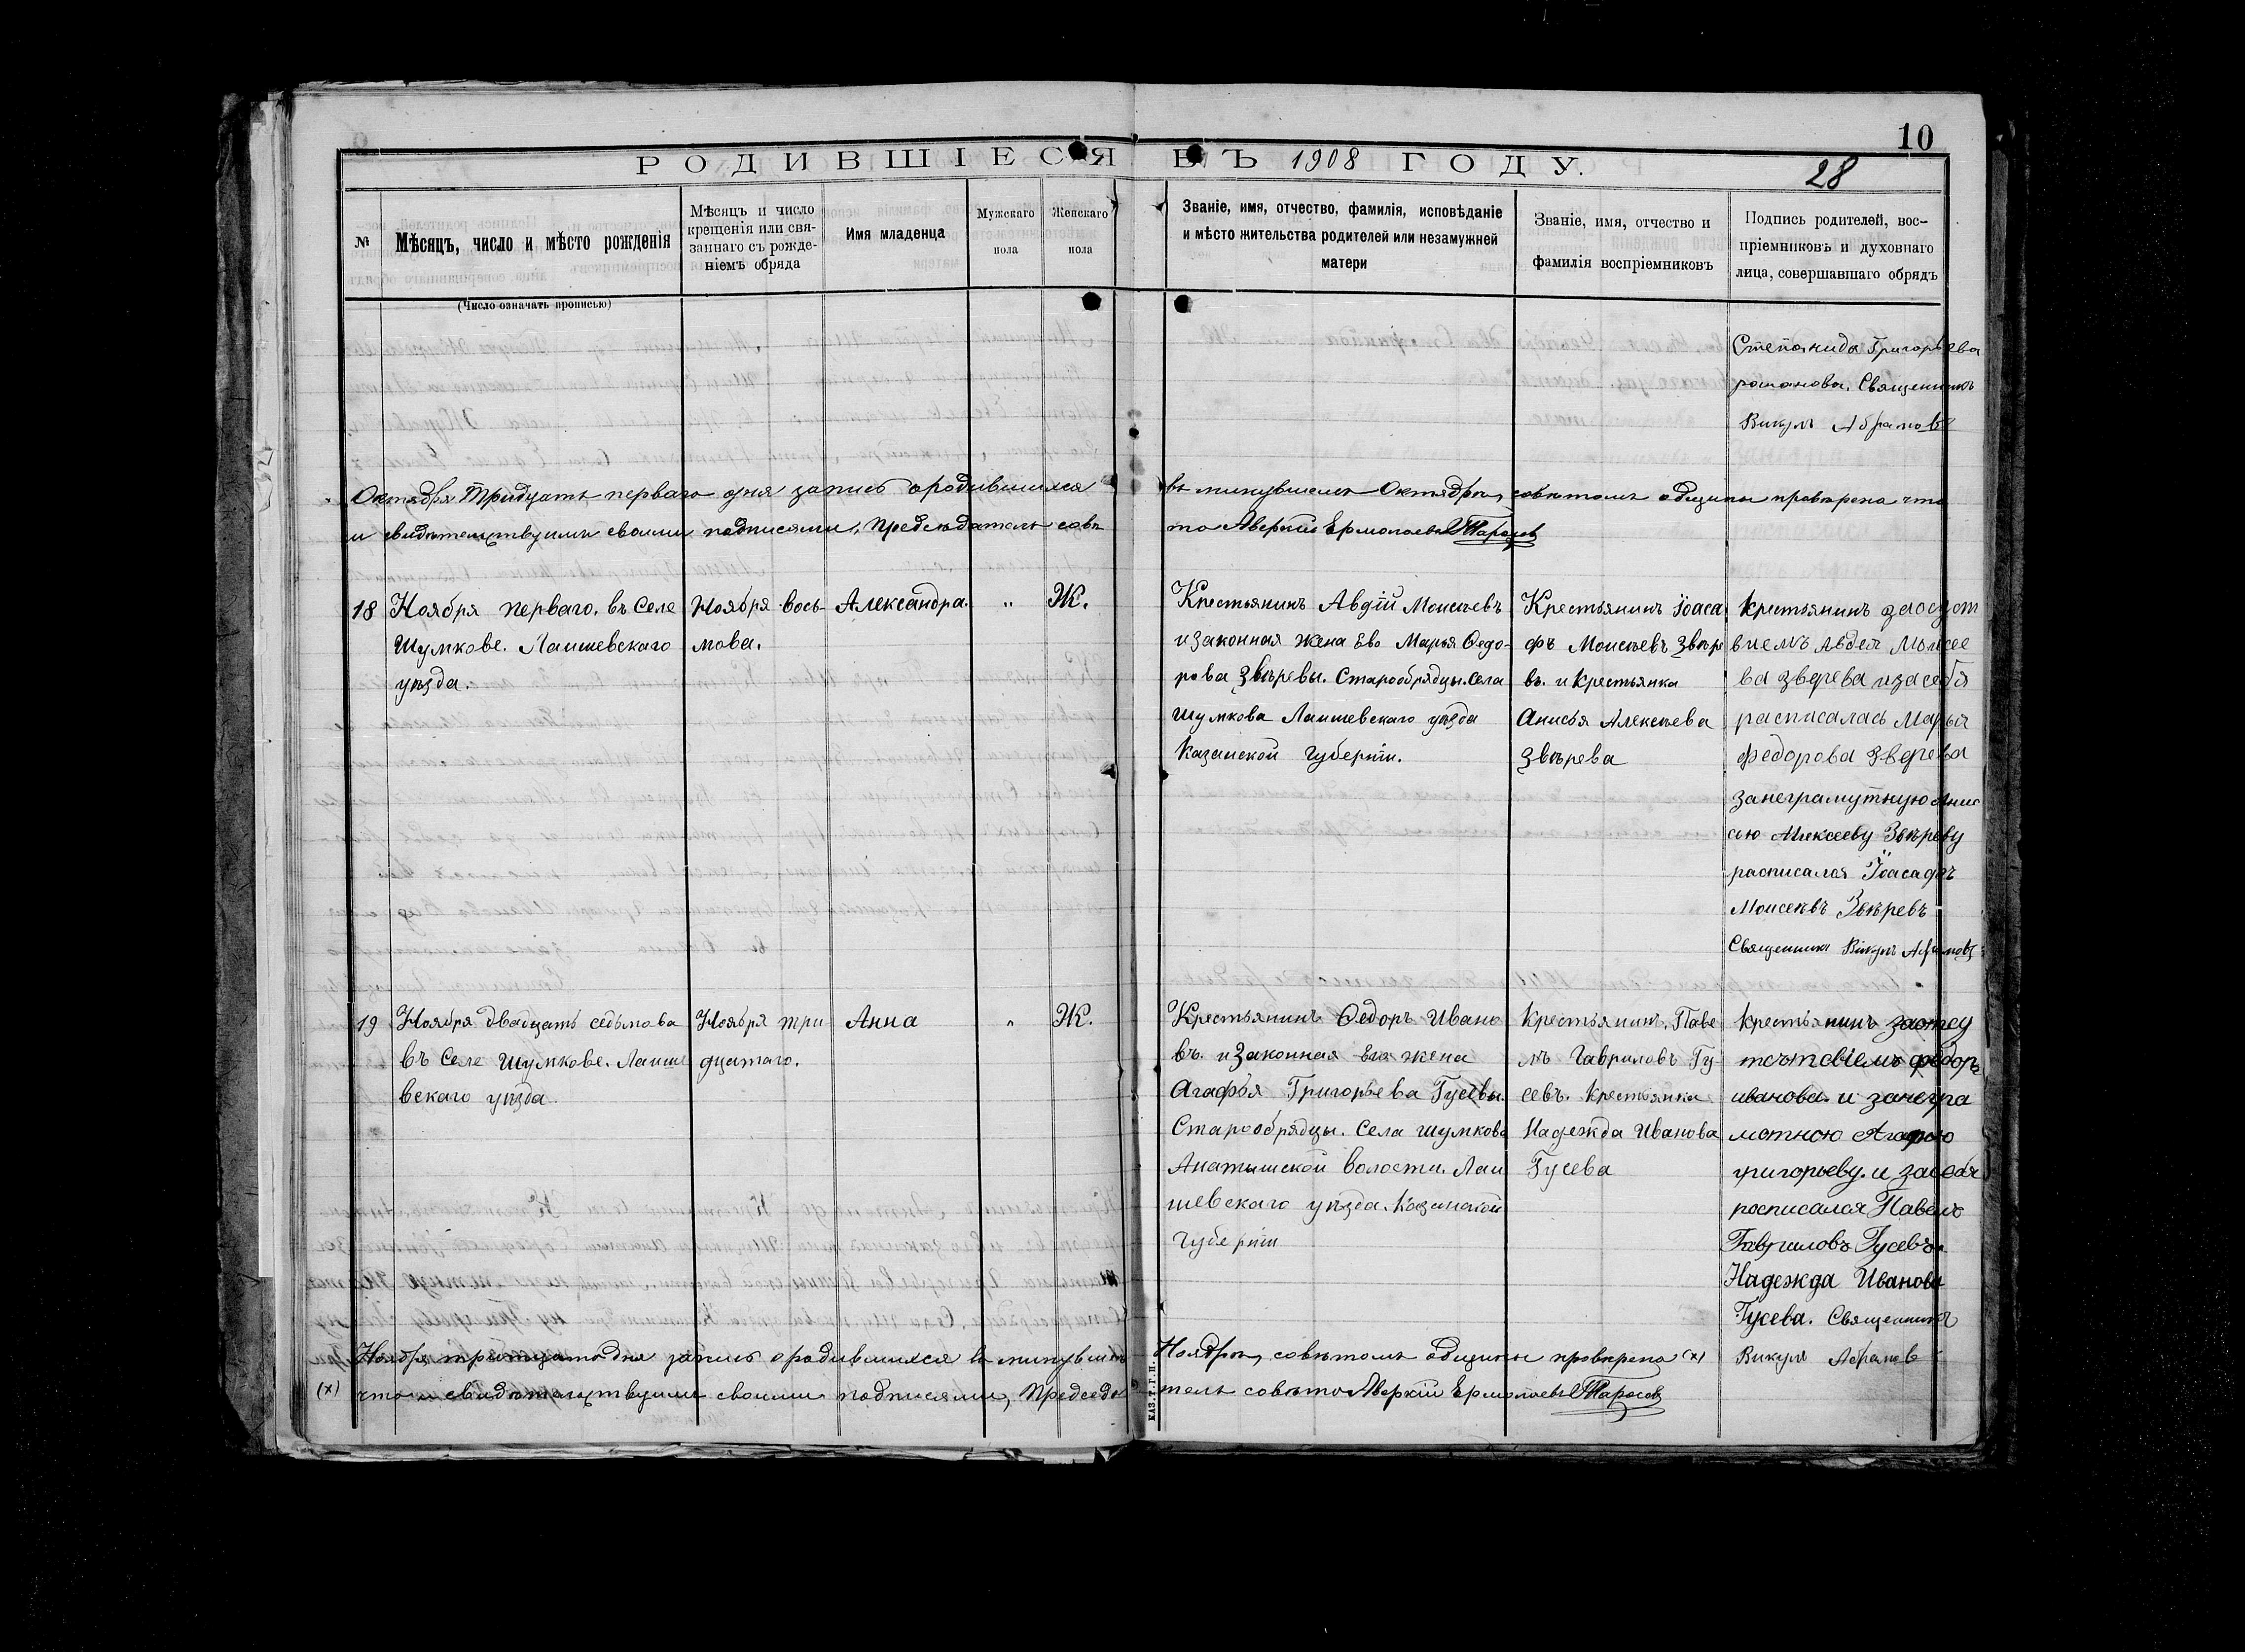 10
РОДИВШІЕСЯ ВЪ 1908 ГОДУ.
28
№
Мѣсяцъ, число и мѣсто рожденія
(Число означать прописью)
Мѣсяцъ и число
крещенія или свя-
заннаго съ рожде-
ніемъ обряда
Имя младенца
Мужскаго
пола
Женскаго
пола
Званіе, имя, отчество, фамилія, исповѣданіе
и мѣсто жительства родителей или незамужней
матери
Званіе, имя, отчество и
фамилія воспріемниковъ
Подпись родителей, вос-
пріемниковъ и духовнаго
лица, совершавшаго обрядъ
Степанида Григорьева
романова. Священникъ
Викулъ Абрамовъ
Октября Тридцать перваго дня запись о родившихся въ минувшемъ Октябрѣ, совѣтомъ общины проверена что
и свидѣтельствуимъ своими подписями, Предсѣдатель совѣ
та Аверкій Ермолаевъ Тарасов
18
Ноября перваго. въ Селе
Шумкове. Лаишевскаго
уѣзда.
Ноября вось-
мова.
Александра.
"
Ж.
Крестьянинъ Авдій Моисѣевъ
и законная жена Ево Марья Ѳедо-
рова Звѣревы. Старообрядцы. Села
Шумкова Лаишевскаго уѣзда
Казанской Губерніи.
Крестьянинъ Іоаса
фъ Моисѣевъ Звѣр
въ. и Крестьянка
Анисья Алексѣева
Звѣрева
крестьянинъ
Авдея Моисее
ва зверева и за себя
расписалась Марья
Федорова Зверева
за неграмутную Анис
ью Алексееву Звѣреву
расписался Іоасафъ
Моисеѣвъ Звѣревъ
Священникъ Викулъ Абрамовъ
19
Ноября двадцать седьмова
въ Селе Шумкове. Лаише
вскаго уѣзда.
Ноября три
дцатаго.
Анна
"
Ж.
Крестьянинъ Ѳедоръ Ивано
въ. и Законная Ея жена
Агафья Григорьева Гусевы.
Старообрядцы. Села Шумкова
Анатышской Волости. Лаи
шевскаго уѣзда. Казанской
Губерніи
Крестьянинъ. Паве
лъ Гавриловъ Гу-
севъ. Крестьянка
Надежда Иванова
Гусева
крестьянинъ
федоръ
иванова. и занегра
мотною Агафью
григорьеву. и за себя
росписался Павелъ
Гавриловъ Гусевъ
Надежда Иванова
Гусева. Священникъ
Викулъ Абрамов
Ноября тритцатадня запись о родившихся в минувшемъ Ноябрѣ, совѣтомъ общины проверена (х)
(х) что и свидѣтельствуимъ своими подписями, Председа
тель совѣта Аверкій Ермолаевъ Тарасов
КАЗ. Т. Г. П.